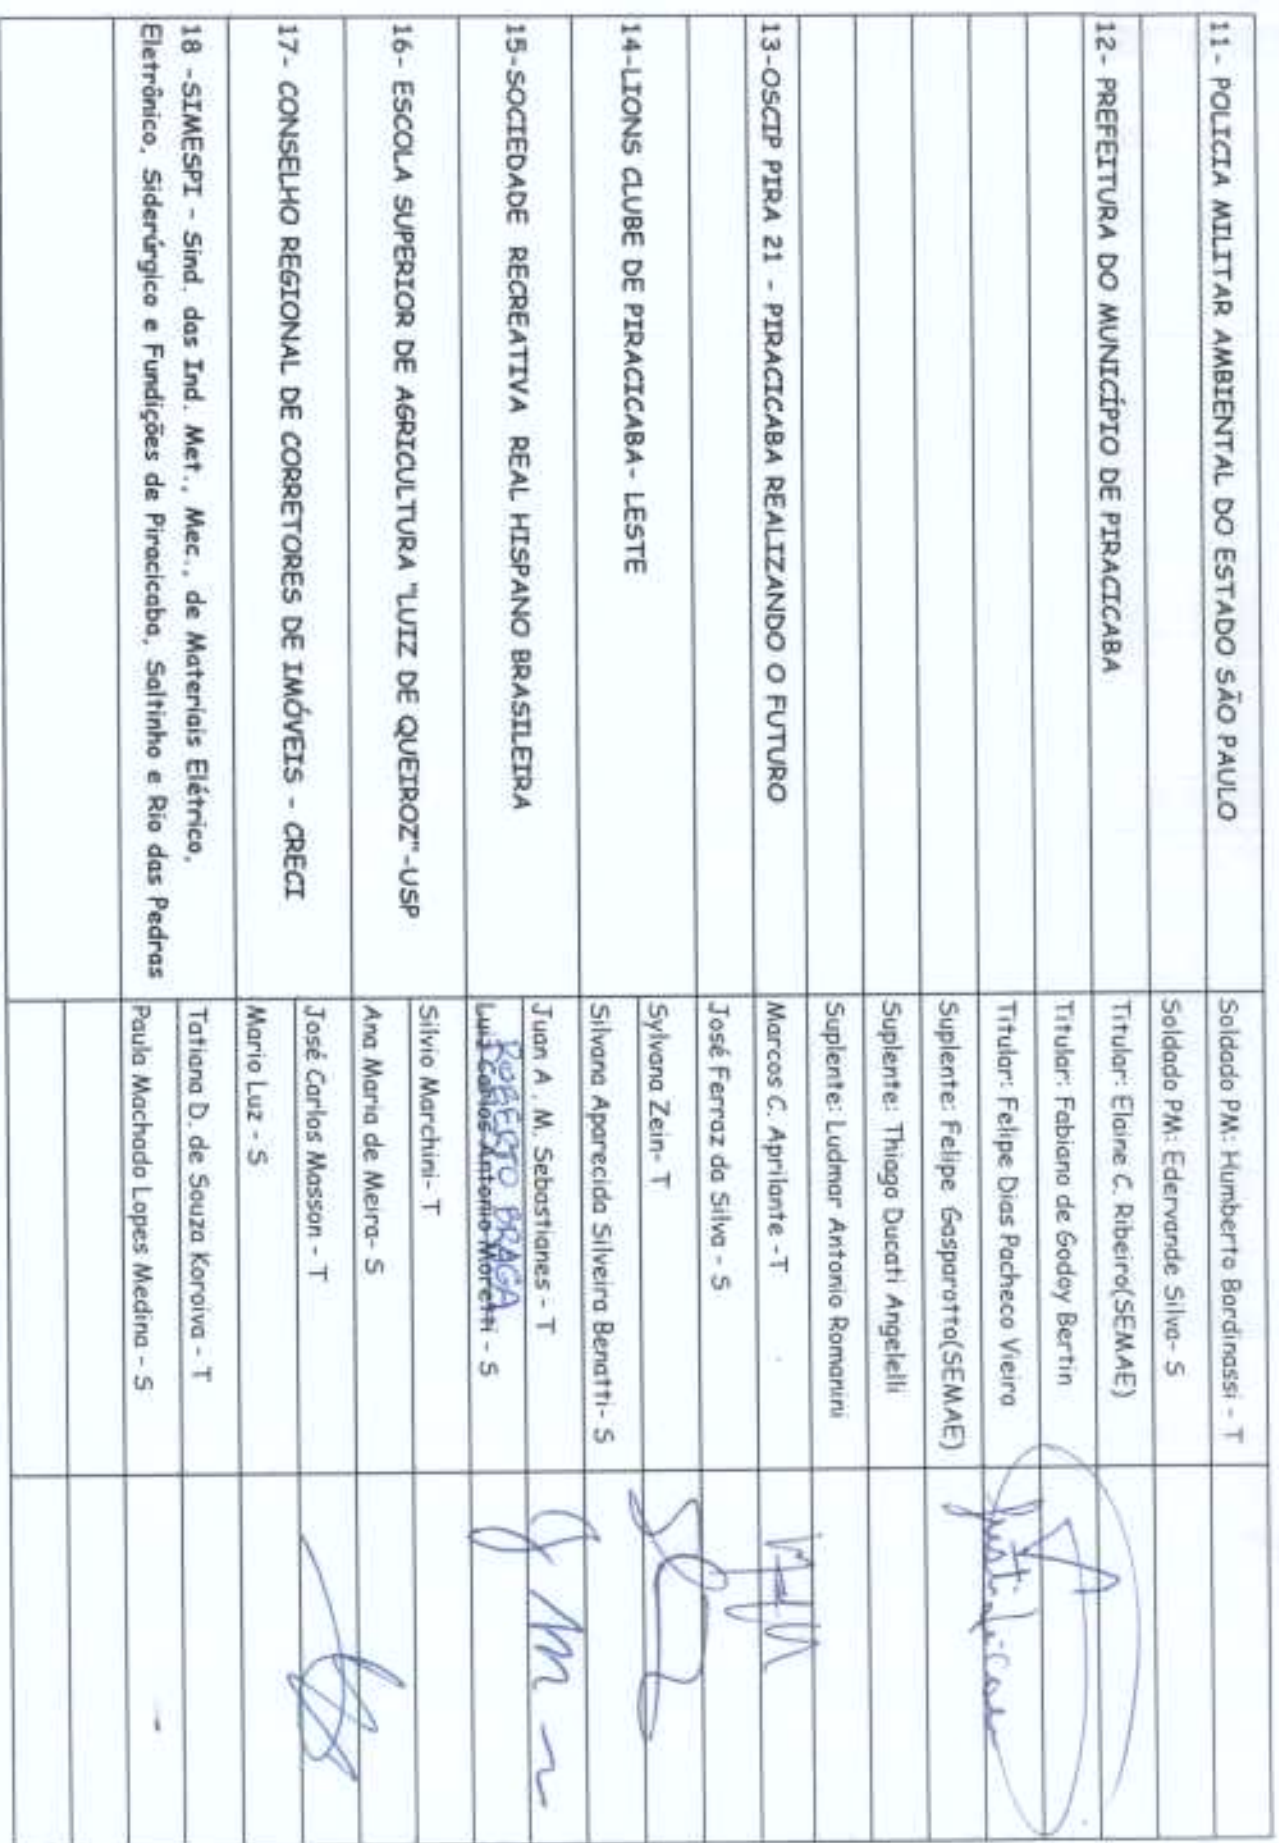 11 - POLICIA MILITAR AMBIENTAL DO ESTADO SÃO PAULO
Soldado PM: Humberto Bardinassi - T
Soldado PM: Edervande Silva- S
12- PREFEITURA DO MUNICÍPIO DE PIRACICABA
Titular: Elaine C. Ribeiro(SEMAE)
Titular: Fabiano de Godoy Bertin
Titular: Felipe Dias Pacheco Vieira
Justificou
Suplente: Felipe Gasparotto(SEMAE)
Suplente: Thiago Ducati Angelelli
Suplente: Ludmar Antonio Romanini
13-OSCIP PIRA 21 - PIRACICABA REALIZANDO O FUTURO
Marcos C. Aprilante -T
José Ferraz da Silva - S
14-LIONS CLUBE DE PIRACICABA- LESTE
Sylvana Zein- T
Silvana Aparecida Silveira Benatti- S
15-SOCIEDADE RECREATIVA REAL HISPANO BRASILEIRA
Juan A . M. Sebastianes - T
ROBERTO BRAGA
Luiz Carlos Antonio Moretti - S
16- ESCOLA SUPERIOR DE AGRICULTURA "LUIZ DE QUEIROZ"-USP
Silvio Marchini- T
Ana Maria de Meira- S
17- CONSELHO REGIONAL DE CORRETORES DE IMÓVEIS - CRECI
José Carlos Masson - T
Mario Luz - S
18 -SIMESPI - Sind. das Ind. Met., Mec., de Materiais Elétrico,
Eletrônico, Siderúrgico e Fundições de Piracicaba, Saltinho e Rio das Pedras
Tatiana D. de Souza Koroiva - T
Paula Machado Lopes Medina - S